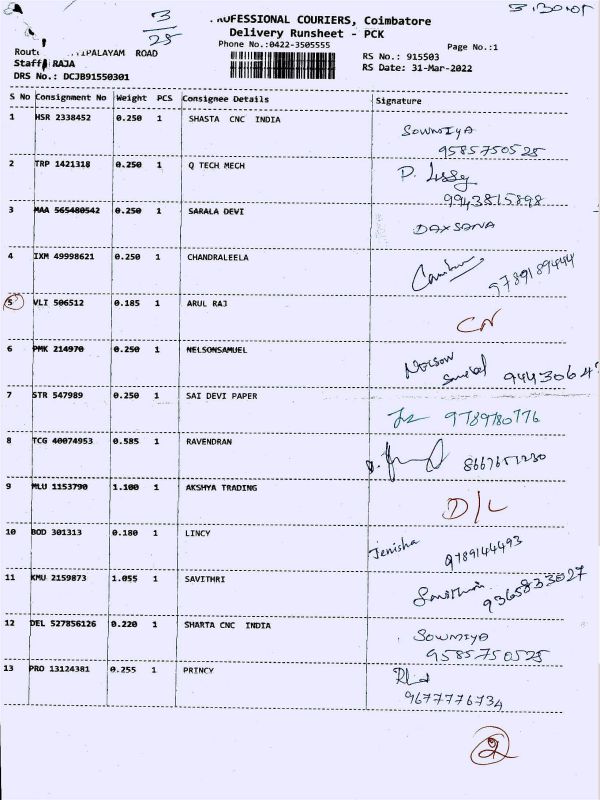 3
25
5.30.01
.ROFESSIONAL COURIERS, Coimbatore
Delivery Runsheet - PCK
Phone No.:0422-3505555
Page No.:1
IPALAYAM ROAD
RS No.: 915503
Staff RAJA
RS Date: 31-Mar-2022
DRS No.: DCJB91550301
S No Consignment No Weight PCS Consignee Details Signature
1 HSR 2338452 0.250 1 SHASTA CNC INDIA
SOWMIYA
9585750525
2 TRP 1421318 0.250 1 Q TECH MECH
9943815898
3 MAA 565480542 0.250 1 SARALA DEVI
DAXSANA
4 IXM 49998621 0.250 1 CHANDRALEELA
9789189444
5 VLI 506512 0.185 1 ARUL RAJ
CN
6 PMK 214970 0.250 1 NELSONSAMUEL
9443064
7 STR 547989 0.250 1 SAI DEVI PAPER
9789780776
8 TCG 40074953 0.585 1 RAVENDRAN
8667651230
9 MLU 1153790 1.100 1 AKSHYA TRADING
D/L
10 BOD 301313 0.180 1 LINCY
Jenisha 9789144493
11 KMU 2159873 1.055 1 SAVITHRI
9365833027
12 DEL 527856126 0.220 1 SHARTA CNC INDIA
SOWMIYA
9585750525
13 PRO 13124381 0.255 1 PRINCY
9677776734
2